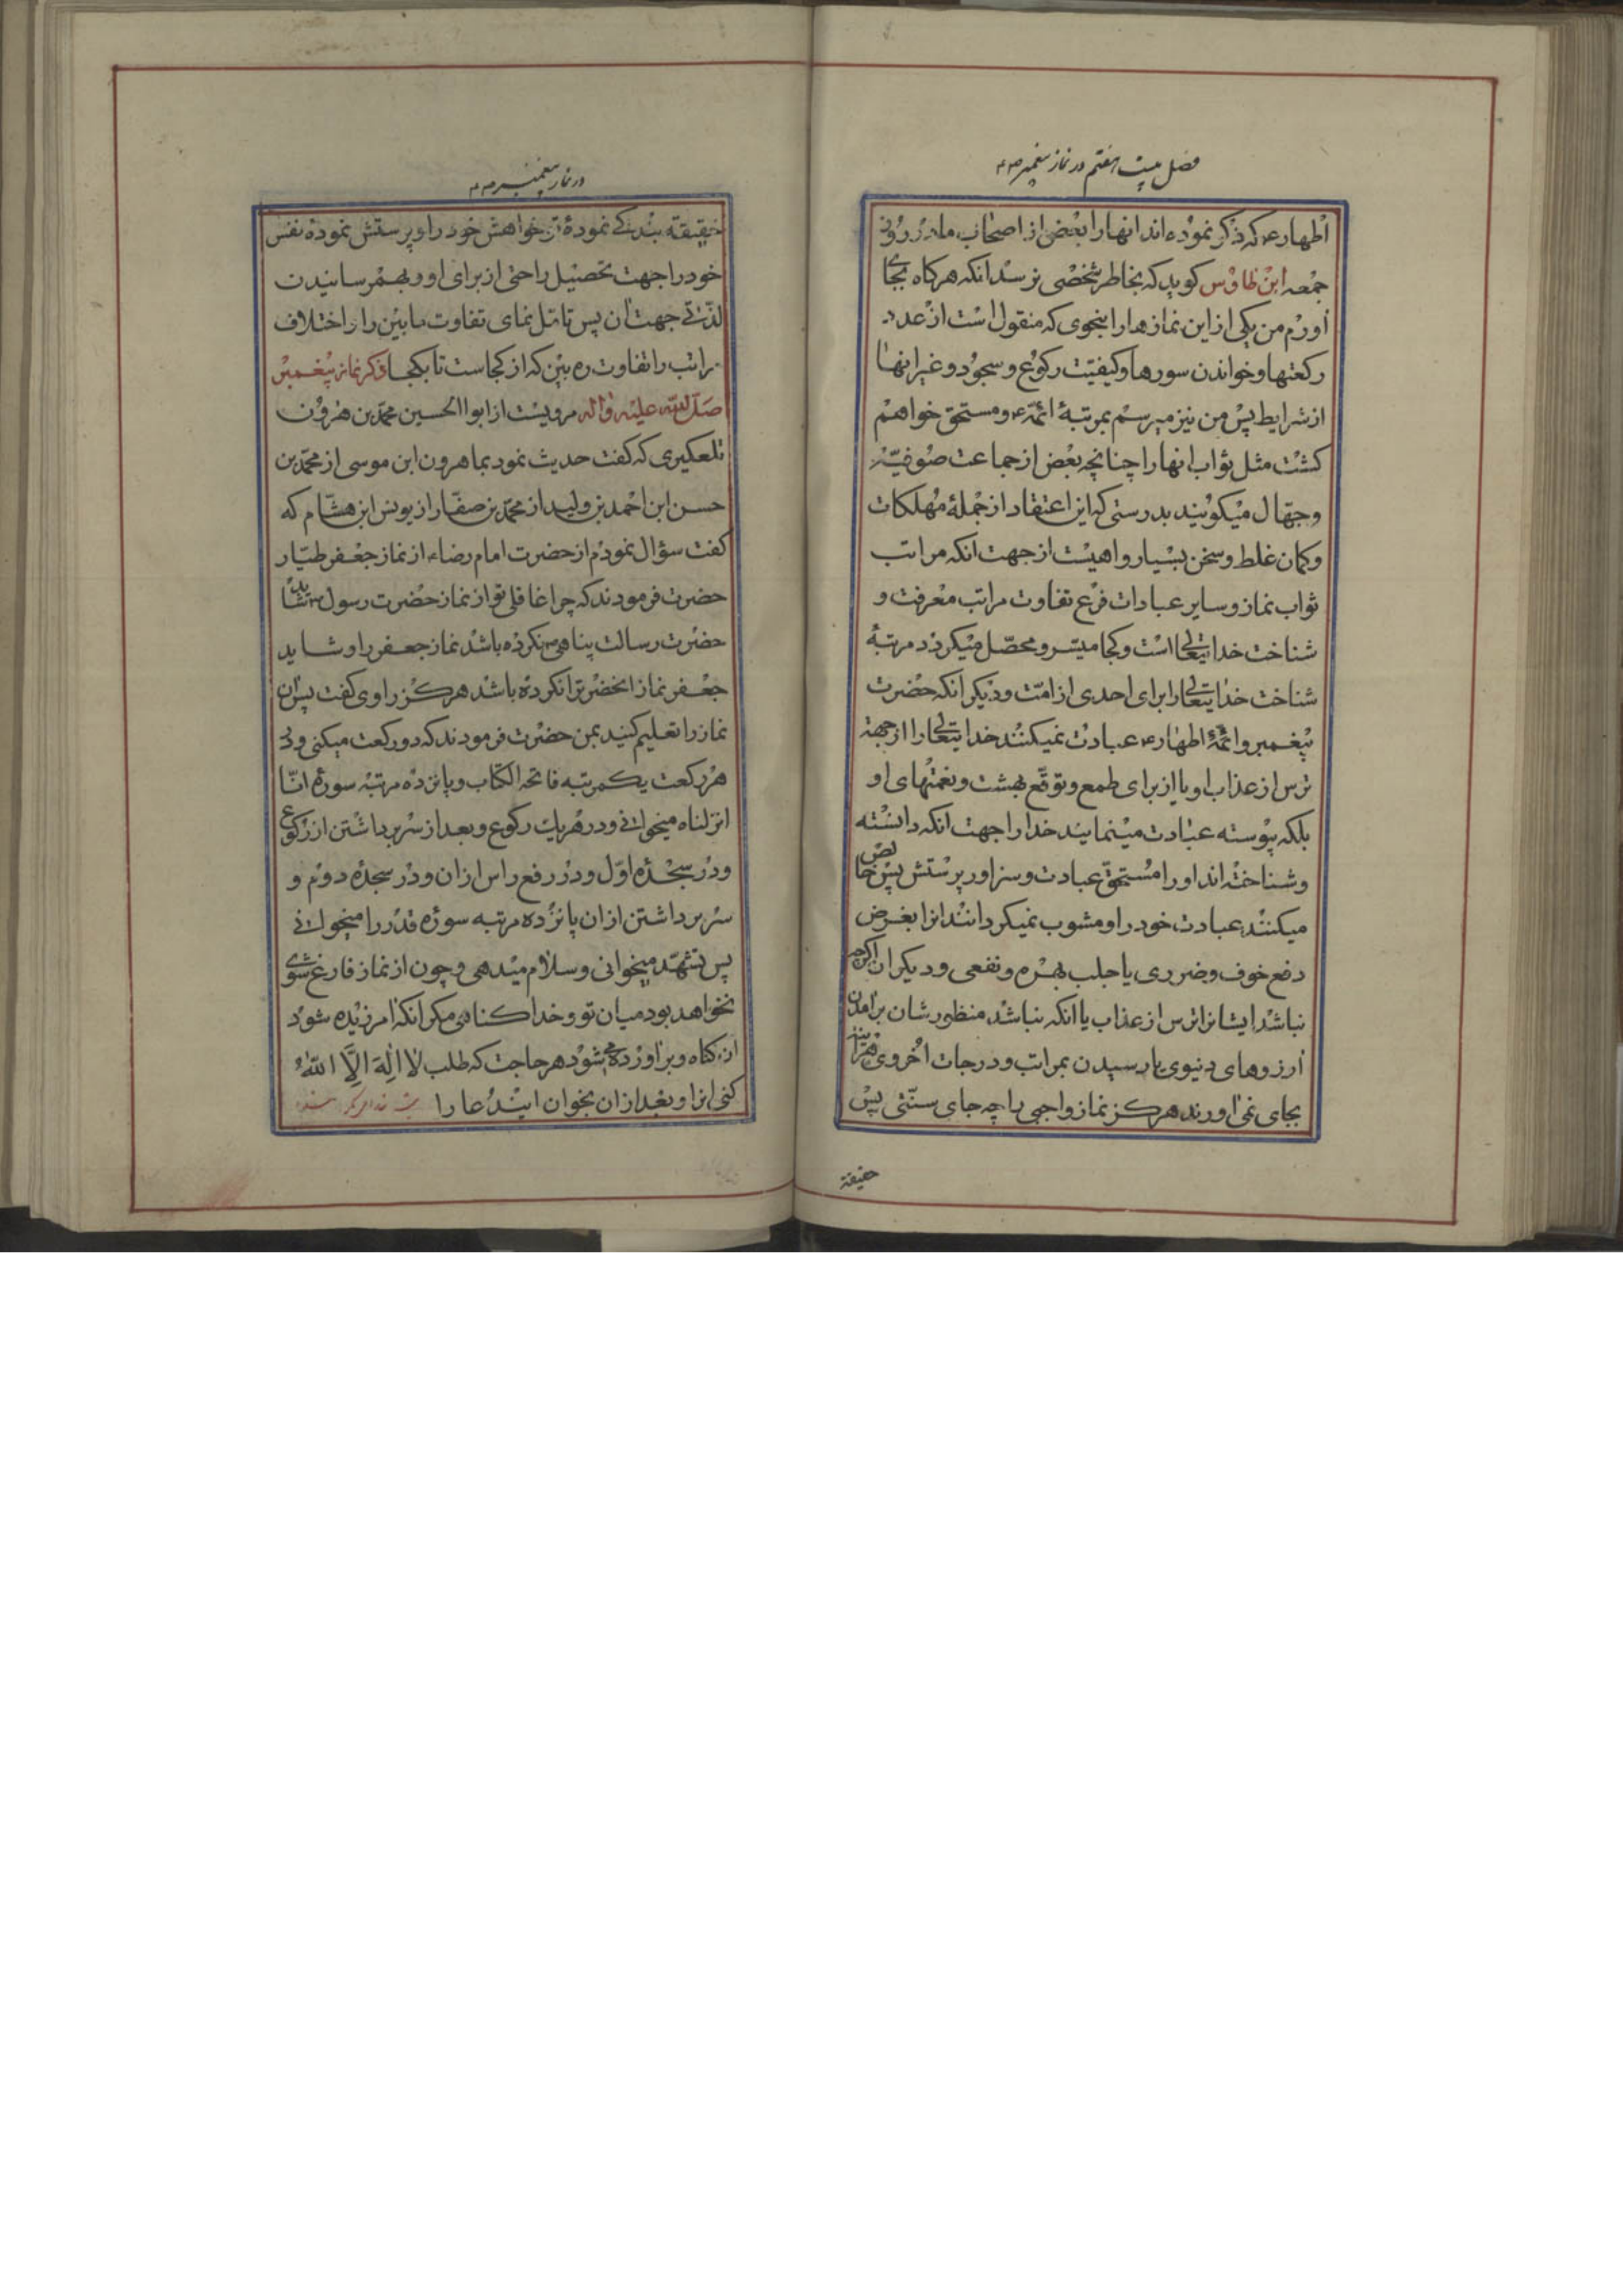 فصل بیست هفتم در نماز پیغمبر ص
اطهار ع که ذکر نموده‌اند انها را بعضی از اصحاب ما در روز
جمعه ابن طاوس کوید که بخاطر شخصی نرسد انکه هرکاه بجای
اورم من یکی از این نمازها را بنحوی که منقول است از عدد
رکعتها و خواندن سورها و کیفیت رکوع و سجود و غیر انها
از شرایط پس من نیز میرسم بمرتبهٔ ائمه ع و مستحق خواهم
کشت مثل ثواب انها را چنانچه بعض از جماعت صوفیه
و جهال میکویند بدرستی که این اعتقاد از جملهٔ مهلکات
و کمان غلط و سخن بسیار واهیست از جهت انکه مراتب
ثواب نماز و سایر عبادات فرع تفاوت مراتب معرفت و
شناخت خدایتعالی است و کجا میسر و محصل میکردد مرتبهٔ
شناخت خدایتعالی را برای احدی از امت و دیکر انکه حضرت
پیغمبر و ائمهٔ اطهار ع عبادت نمیکنند خدایتعالی را از جهة
ترس از عذاب او یا از برای طمع و توقع بهشت و نعمتهای او
بلکه پیوسته عبادت مینمایند خدا را جهت انکه دانسته
و شناخته‌اند او را مستحق عبادت و سزاور پرستش پس خالص
میکنند عبادت خود را و مشوب نمیکردانند انرا بغرض
دفع خوف و ضرری یا جلب بهره و نفعی و دیکران اکرچه
نباشد ایشانرا ترس از عذاب یا انکه نباشد منظورشان برامدن
ارزوهای دنیوی یا رسیدن بمراتب و درجات اخروی
بجای نمی‌اورند هرکز نماز واجبی را چه جای سنتی پس
حقیقة
در نماز پیغمبر ص
حقیقته بندکی نمودهٔ تو خواهش خود را و پرستش نمودهٔ نفس
خود را جهت تحصیل راحتی از برای او و بهمرسانیدن
لذتی جهت ان پس تامل نمای تفاوت ما بین را و اختلاف
مراتب را تفاوت ره بین که از کجاست تا بکجا ذکر نماز پیغمبر
صلی الله علیه و اله مرویست از ابوا الحسین محمد بن هرون
تلعکبری که کفت حدیث نمود بما هرون ابن موسی از محمد بن
حسن ابن احمد بن ولید از محمد بن صفار از یونس ابن هشام که
کفت سؤال نمودم از حضرت امام رضا ع از نماز جعفر طیار
حضرت فرمودند که چرا غافلی تو از نماز حضرت رسول ص شاید
حضرت رسالت پناهی ص نکرده باشد نماز جعفر را و شاید
جعفر نماز انحضرت را نکرده باشد هرکز راوی کفت پس ان
نماز را تعلیم کنید بمن حضرت فرمودند که دو رکعت میکنی و در
هر رکعت یکمرتبه فاتحة الکتاب و پانزده مرتبه سورهٔ انا
انزلناه میخوانی و در هر یک رکوع و بعد از سر برداشتن از رکوع
و در سجدهٔ اول و در رفع راس از ان و در سجدهٔ دوم و
سر برداشتن از ان پانزده مرتبه سوره قدر را میخوانی
پس تشهد میخوانی و سلام میدهی و چون از نماز فارغ شوی
نخواهد بود میان تو و خدا کناهی مکر انکه امرزیده شود
ان کناه و براورده شود هر حاجت که طلب لا اله الا الله
کنی انرا و بعد از ان بخوان این دعا را